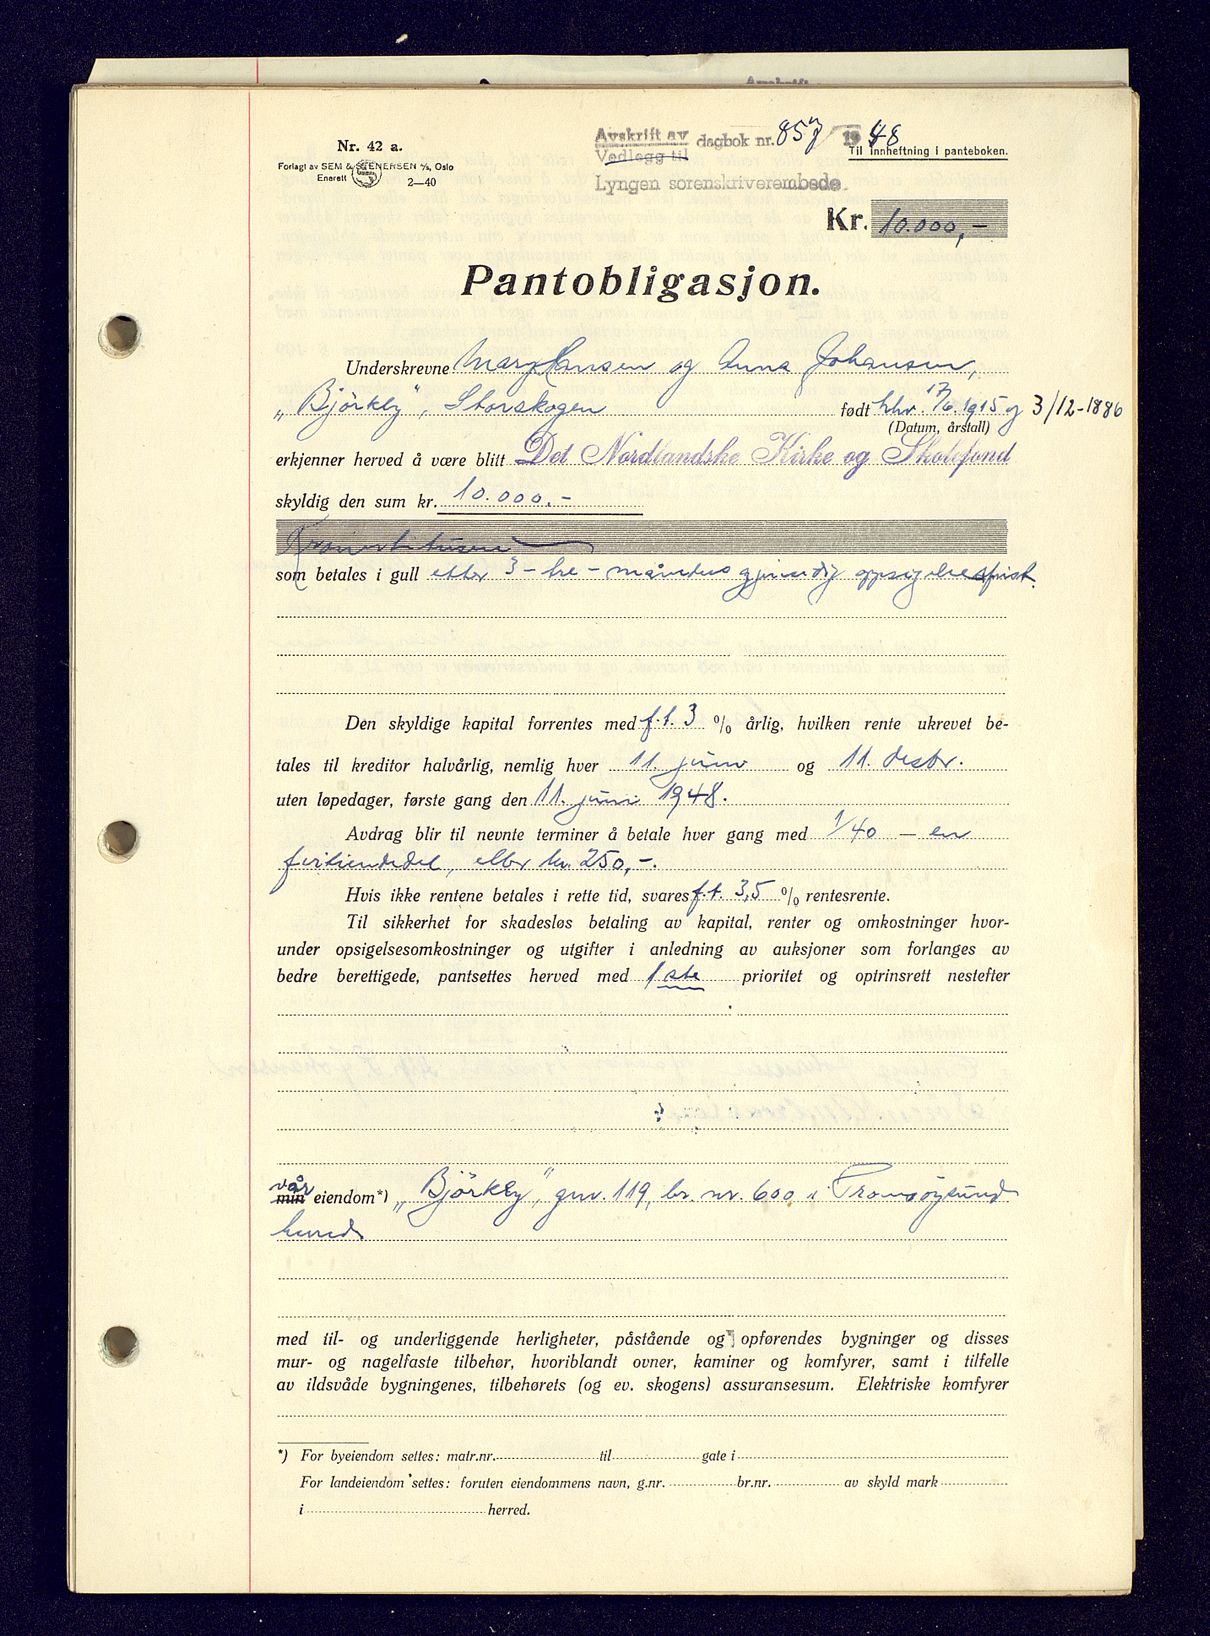 Avskrift
Nr. 42 a.
Forlagt av SEM & STENERSEN A/S, Oslo
Enerett 2—40
Avskrift av
Vedlegg til
dagbok nr. 857 1948
Til innheftning i panteboken.
Lyngen sorenskriverembede.
Kr. 10.000,-
Pantobligasjon.
Underskrevne Mary Hansen og Anna Johansen,
„Bjørkly", Storskogen født hhv. 17/6.1915 og 3/12-1886
(Datum, årstall)
erkjenner herved å være blitt Det Nordlandske Kirke og Skolefond
skyldig den sum kr. 10.000.-
Kronertitusen
som betales i gull etter 3 - tre - måneders gjensidig oppsigelsesfrist.
Den skyldige kapital forrentes med f.t. 3 % årlig, hvilken rente ukrevet be-
tales til kreditor halvårlig, nemlig hver 11. juni og 11. desbr.
uten løpedager, første gang den 11. juni 1948.
Avdrag blir til nevnte terminer å betale hver gang med 1/40 - en
førtiendedel, eller kr. 250,-.
Hvis ikke rentene betales i rette tid, svares f.t. 3,5 % rentesrente.
Til sikkerhet for skadesløs betaling av kapital, renter og omkostninger hvor-
under opsigelsesomkostninger og utgifter i anledning av auksjoner som forlanges av
bedre berettigede, pantsettes herved med 1ste prioritet og optrinsrett nestefter
vår
min eiendom*) „Bjørkly", gnr. 119, br. nr. 600 i Tromsøysund
herred
med til- og underliggende herligheter, påstående og opførendes bygninger og disses
mur- og nagelfaste tilbehør, hvoriblandt ovner, kaminer og komfyrer, samt i tilfelle
av ildsvåde bygningenes, tilbehørets (og ev. skogens) assuransesum. Elektriske komfyrer
*) For byeiendom settes: matr.nr. til gate i
For landeiendom settes: foruten eiendommens navn, g.nr. br.nr. av skyld mark
i herred.